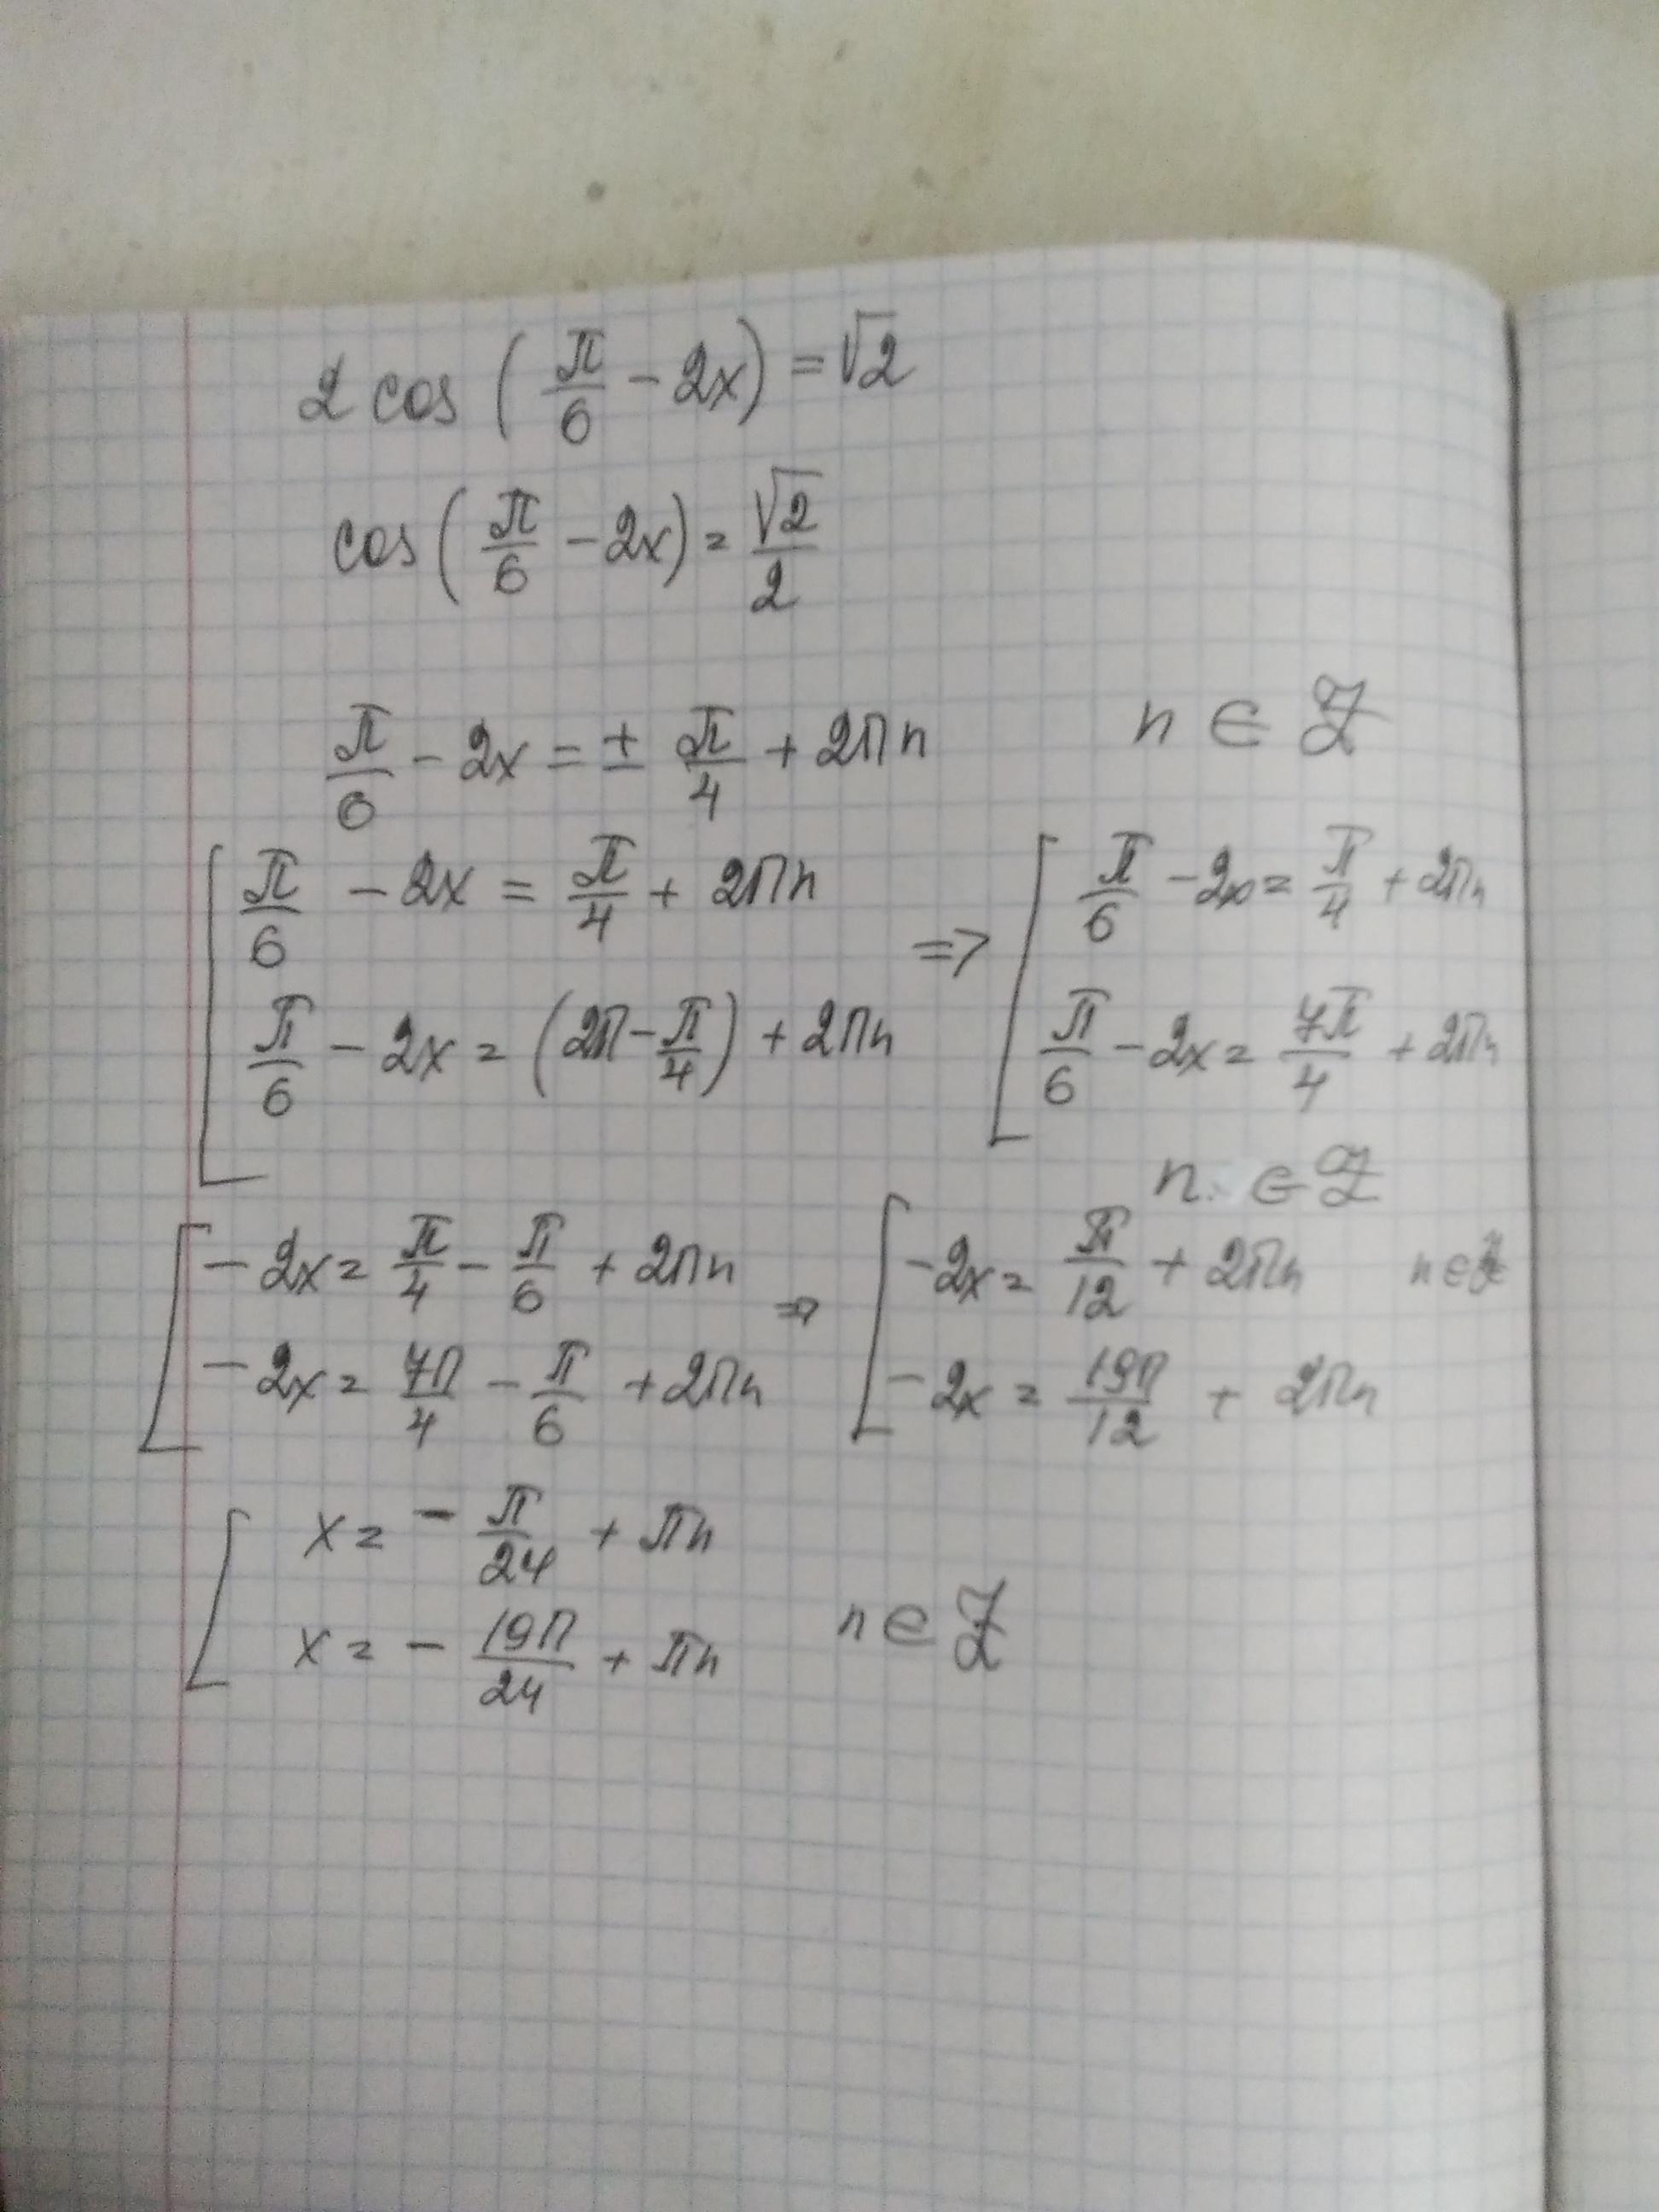 2 cos (π/6 − 2x) = √2
cos (π/6 − 2x) = √2/2
π/6 − 2x = ± π/4 + 2πn n ∈ Z
[ π/6 − 2x = π/4 + 2πn
π/6 − 2x = (2π − π/4) + 2πn
=> [ π/6 − 2x = π/4 + 2πn
π/6 − 2x = 7π/4 + 2πn
n ∈ Z
[ − 2x = π/4 − π/6 + 2πn
− 2x = 7π/4 − π/6 + 2πn
=> [ − 2x = π/12 + 2πn n ∈ Z
− 2x = 19π/12 + 2πn
[ x = − π/24 + πn
x = − 19π/24 + πn n ∈ Z